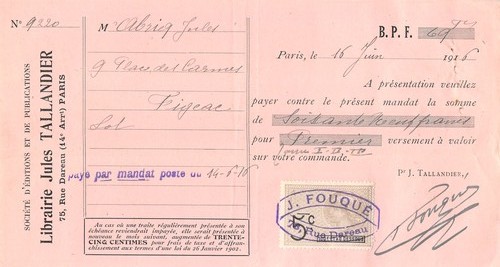 SOCIÉTÉ D'ÉDITIONS ET DE PUBLICATIONS
Librairie Jules TALLANDIER
75, Rue Dareau (14e Arrt) PARIS
N° 9220
M Abriq Jules
9 Place des Carmes
Figeac
Lot
payé par mandat poste du 14-6-16
Au cas où une traite régulièrement présentée à son
échéance reviendrait impayée, elle serait présentée à
nouveau le mois suivant, augmentée de TRENTE-
CINQ CENTIMES pour frais de taxe et d'affran-
chissement aux termes de la loi du 26 Janvier 1902.
B. P. F. 69
Paris, le 16 Juin 1916
A présentation veuillez
payer contre le présent mandat la somme
de Soixante neuf francs
pour Premier versement à valoir
sur votre commande.
Pr J. TALLANDIER,
J. FOUQUÉ
5 C
75, Rue Dareau
Fouqué